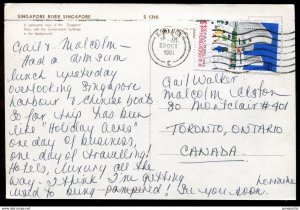 SINGAPORE RIVER SINGAPORE
S 1340
A panoramic view of the Singapore
River, with the Government buildings
in the background
Gail & Malcolm –
Had a dim sum
lunch yesterday
overlooking Singapore
harbour & Chinese boats
So far trip has been
like "Holiday Acres"
one day of business,
one day of travelling!
Hotels, luxury all the
way – I think I'm getting
used to being pampered! See you soon.
Lorraine
23 OCT
1981
Gail Walker
Malcolm
80 Montclair #401
TORONTO, ONTARIO
CANADA